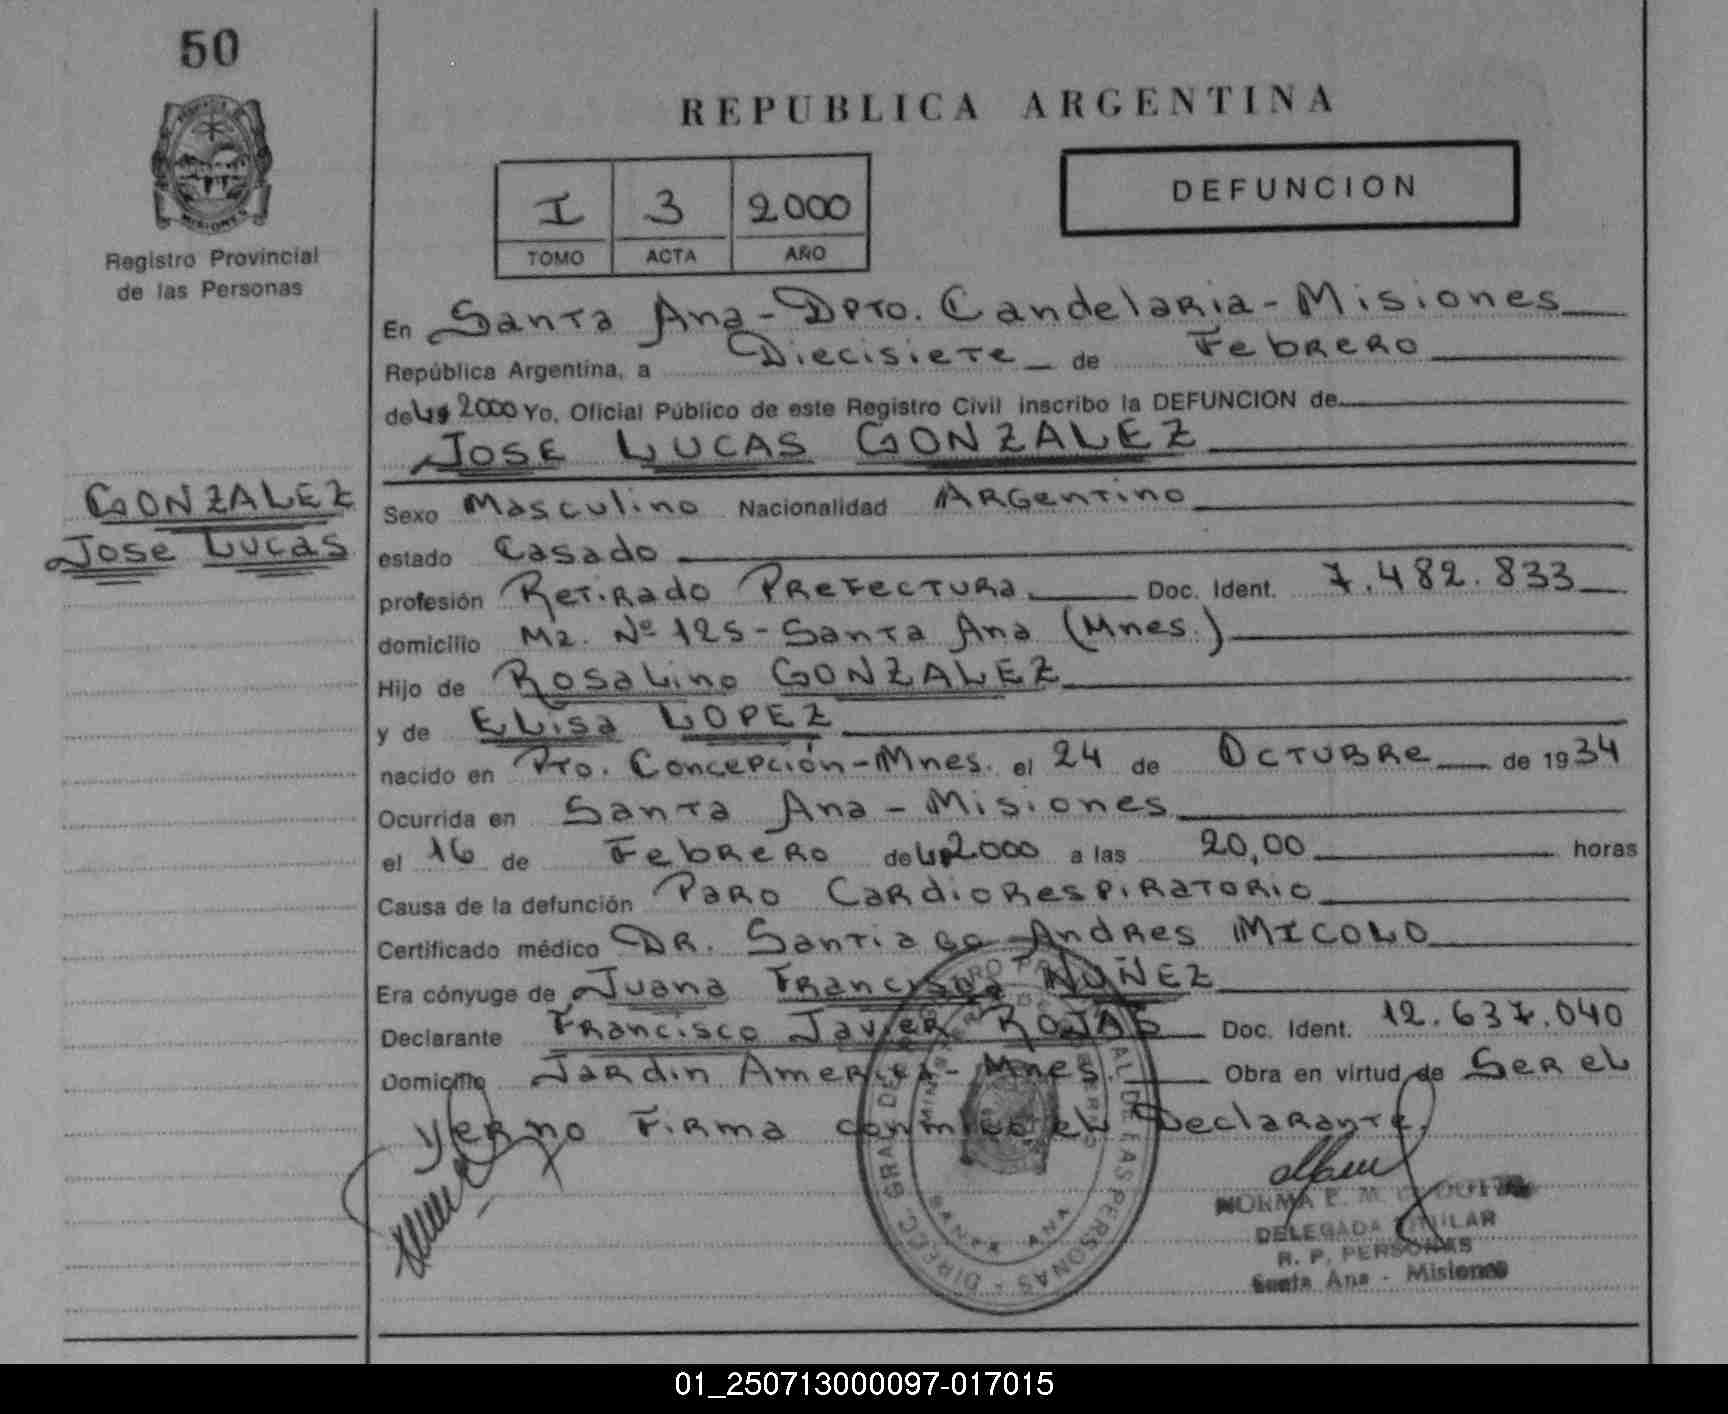 50
Registro Provincial
de las Personas
REPUBLICA ARGENTINA
I 3 2000
TOMO ACTA AÑO
DEFUNCION
En Santa Ana - Dpto. Candelaria - Misiones
República Argentina, a Diecisiete de Febrero
de 2000 Yo, Oficial Público de este Registro Civil inscribo la DEFUNCION de
JOSE LUCAS GONZALEZ
GONZALEZ
Jose Lucas
Sexo Masculino Nacionalidad Argentino
estado Casado
profesión Retirado Prefectura Doc. Ident. 7.482.833
domicilio Mz. Nº 125 - Santa Ana (Mnes.)
Hijo de Rosalino GONZALEZ
y de Elisa LOPEZ
nacido en Pto. Concepción - Mnes. el 24 de Octubre de 1934
Ocurrida en Santa Ana - Misiones
el 16 de Febrero de 2000 a las 20,00 horas
Causa de la defunción Paro Cardiorespiratorio
Certificado médico Dr. Santiago Andres MICOLO
Era cónyuge de Juana Francisca NUÑEZ
Declarante Francisco Javier ROJAS Doc. Ident. 12.637.040
Domicilio Jardin America - Mnes. Obra en virtud de Ser el
yerno Firma conmigo el Declarante.
DIREC. GRAL DE REGISTRO PROVINCIAL DE LAS PERSONAS
SANTA ANA
NORMA E. M.
DELEGADA TITULAR
R. P. PERSONAS
Santa Ana - Misiones
01_250713000097-017015